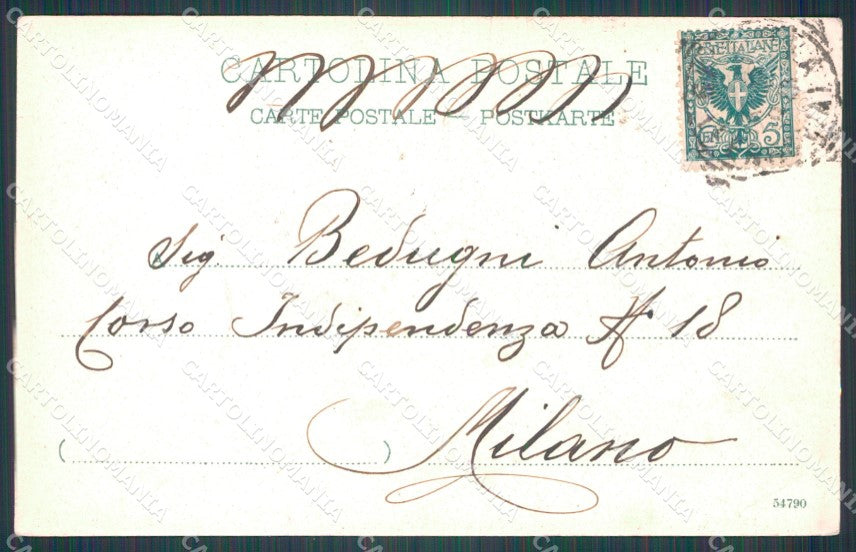 CARTOLINA POSTALE
CARTE POSTALE — POSTKARTE
POSTE ITALIANE
CENT. 5
Sig. Bedugni Antonio
Corso Indipendenza N° 18
Milano
( )
54790
CARTOLINOMANIA